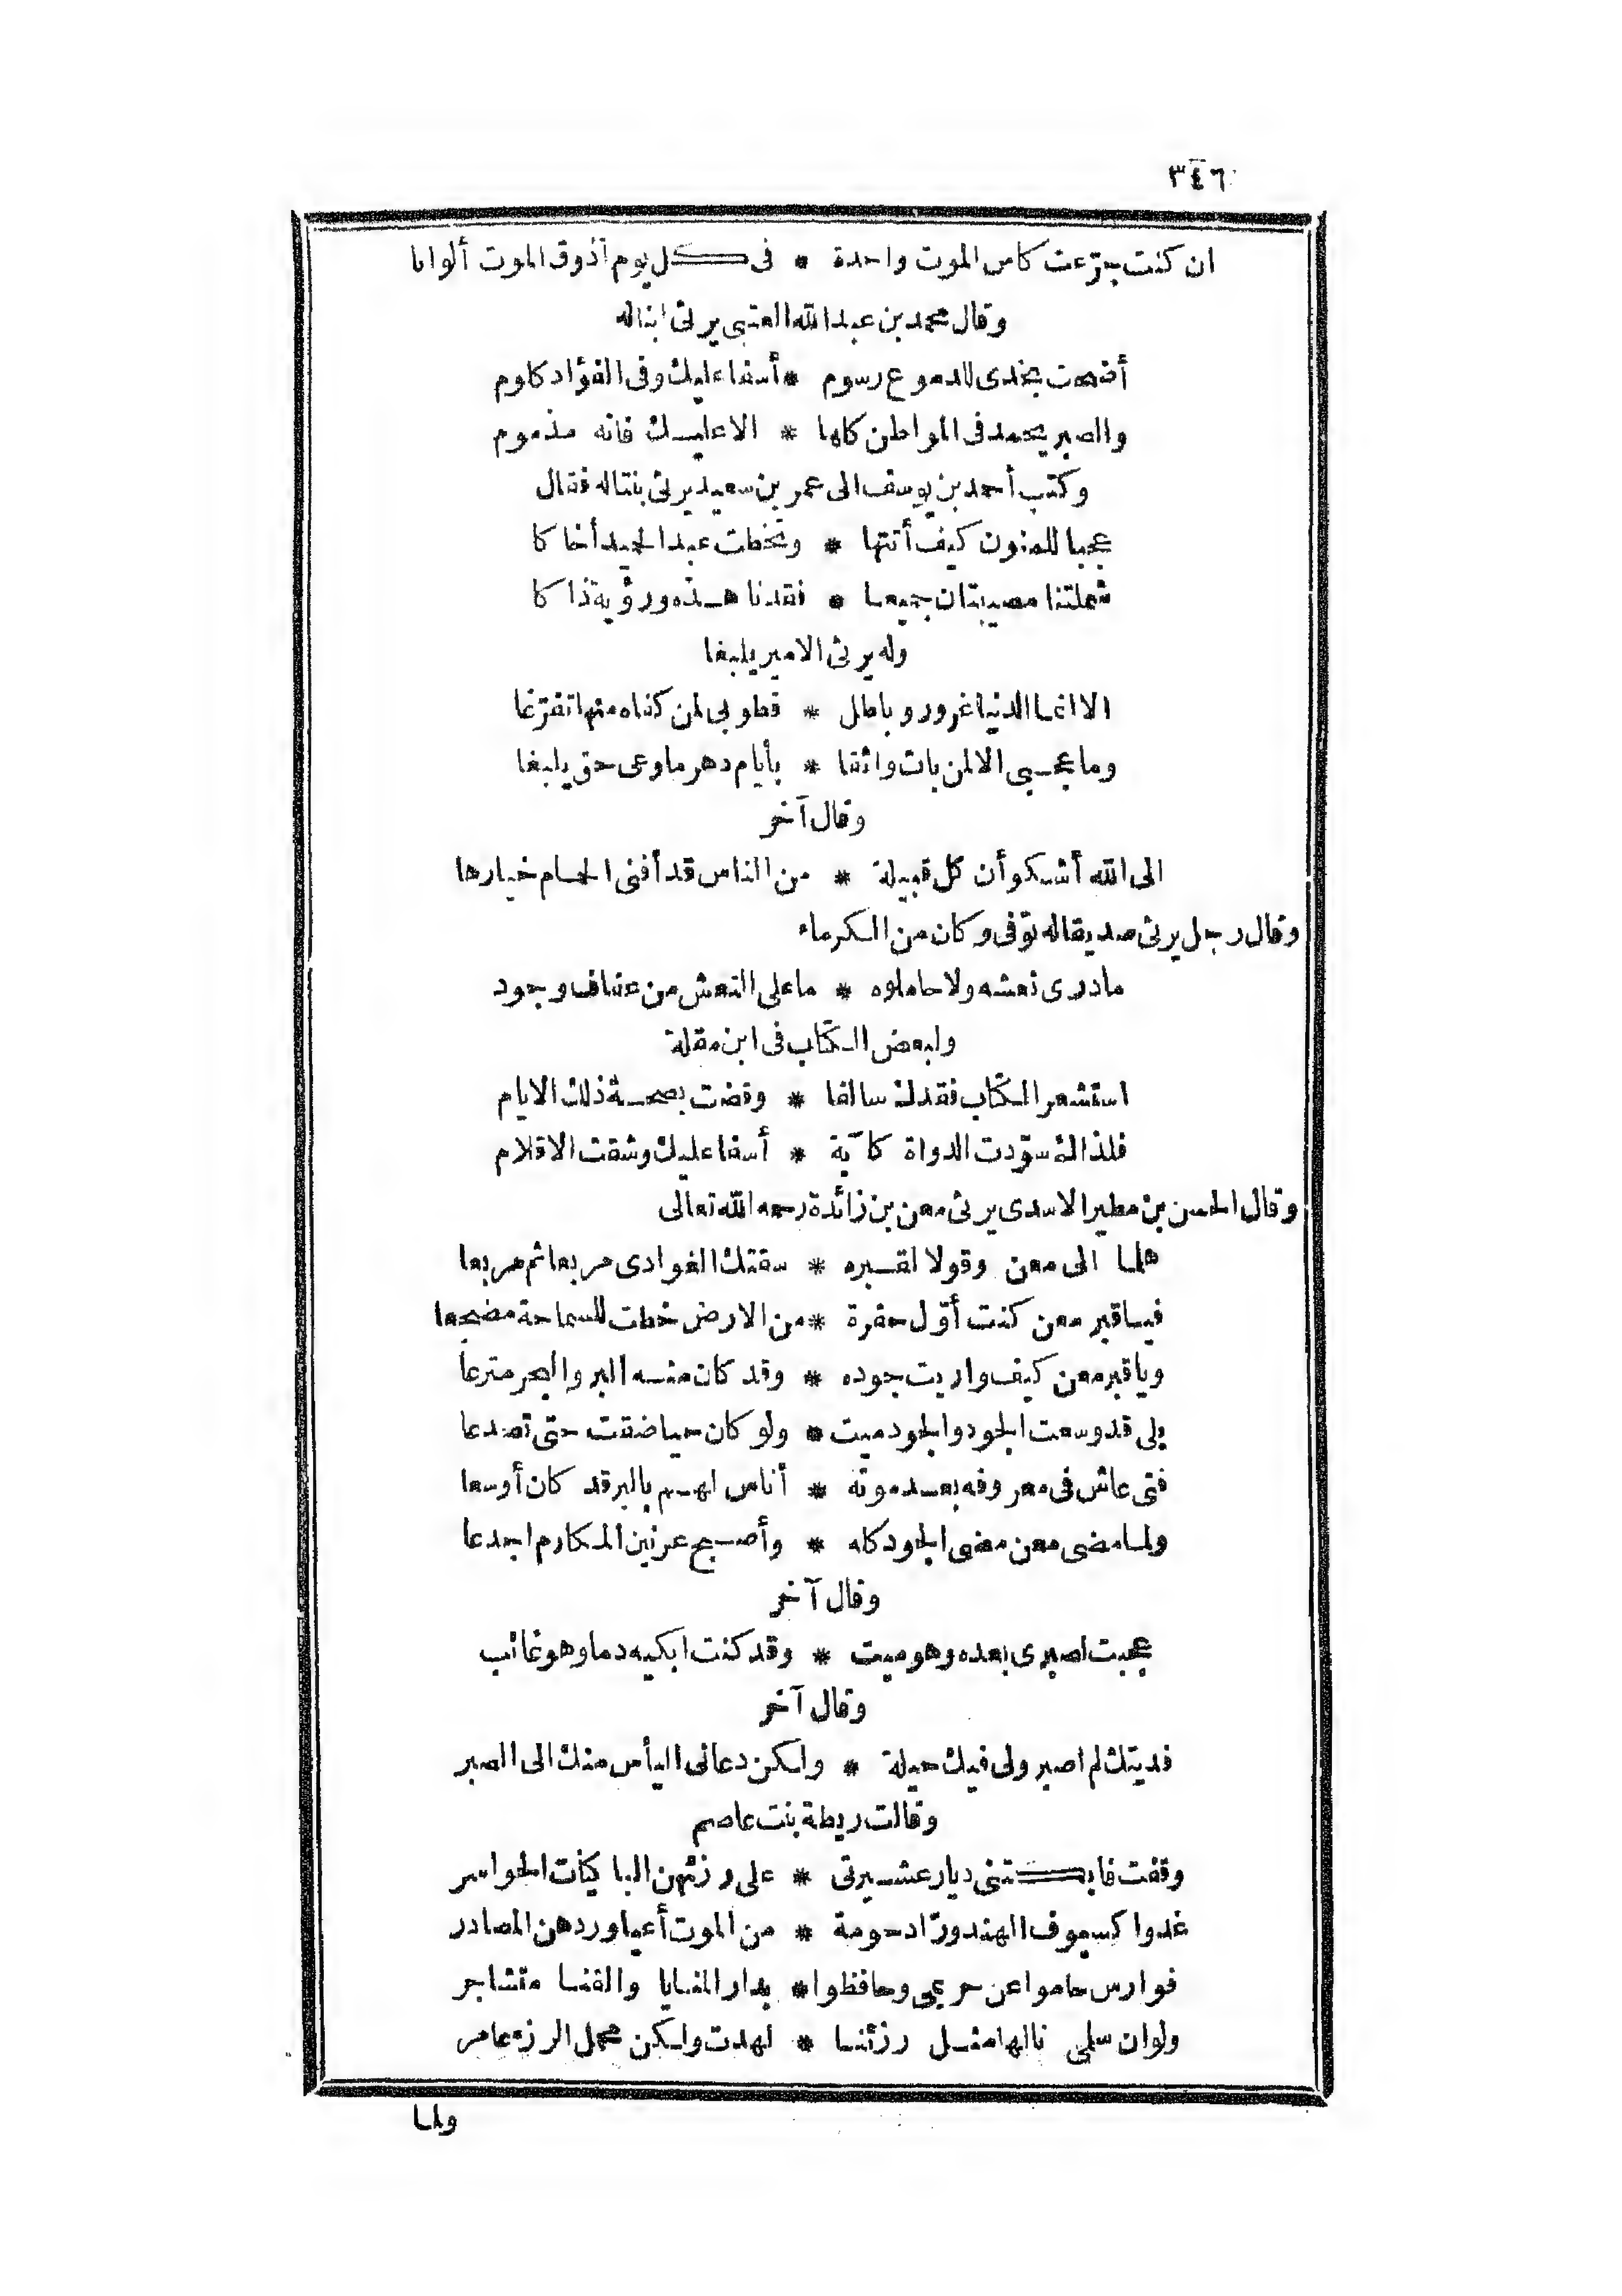 ٣٤٦
ان كنت جرّعت كاس الموت واحدة * فى كل يوم أذوق الموت ألوانا
وقال محمد بن عبد الله العتبى يرثى ابناله
أضحت بخدى للدموع رسوم * أسفا عليك وفى الفؤاد كلوم
والصبر يحمد فى المواطن كلها * الا عليك فانه مذموم
وكتب أحمد بن يوسف الى عمر بن سعيد يرثى بنتاله فقال
عجبا للمنون كيف أتتها * وتخطت عبد الحميد أخاكا
شملتنا مصيبتان جميعا * فقدنا هذه ورؤية ذاكا
وله يرثى الامير يلبغا
الا انما الدنيا غرور وباطل * فطوبى لمن كفاه منها تفرّغا
وما عجبى الا لمن بات واثقا * بأيام دهر ما وعى حق يلبغا
وقال آخر
الى الله أشكو أن كل قبيلة * من الناس قد أفنى الحمام خيارها
وقال رجل يرثى صديقاله توّفى وكان من الكرماء
مادرى نعشه ولا حاملوه * ما على النعش من عفاف وجود
ولبعض الكتّاب فى ابن مقلة
استشعر الكتّاب فقدك سالفا * وقضت بصحة ذلك الايام
فلذاك سوّدت الدواة كآبة * أسفا عليك وشقت الاقلام
وقال الحسن بن مطير الاسدى يرثى معن بن زائدة رحمه الله تعالى
هلما الى معن وقولا لقبره * سقتك الغوادى مربعا ثم مربعا
فيا قبر معن كنت أوّل حفرة * من الارض خطت للسماحة مضجعا
ويا قبر معن كيف واريت جوده * وقد كان منه البر والبحر مترعا
بلى قد وسعت الجود والجود ميت * ولو كان حيا ضقت حتى تصدعا
فتى عاش فى معروفه بعد موته * أناس لهم بالبر قد كان أوسعا
ولما مضى معن مضى الجود كله * وأصبح عرنين المكارم اجدعا
وقال آخر
عجبت لصبرى بعده وهو ميت * وقد كنت ابكيه دما وهو غائب
وقال آخر
فديتك لم اصبر ولى فيك حيلة * ولكن دعانى اليأس منك الى الصبر
وقالت ريطة بنت عاصم
وقفت فابكتنى ديار عشيرتى * على رزئهن الباكيات الحواسر
غدوا كسيوف الهند ورّاد حومة * من الموت أعيا وردهن المصادر
فوارس حاموا عن حريمى وحافظوا * بدار المنايا والقنا متشاجر
ولو ان سلمى نالها مثل رزئنا * لهدت ولكن تحمل الرزء عامر
ولما